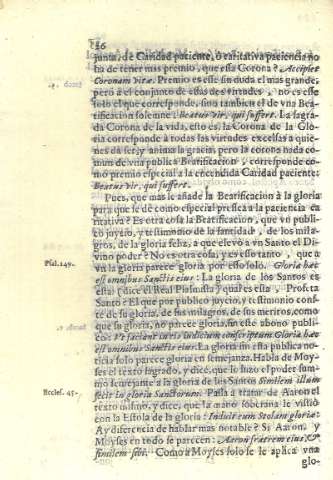 86
junta, de Caridad paciente, ò caritativa paciencia no
ha de tener mas premio, que essa Corona? Accipiet
Coronam vitæ. Premio es este sin duda el mas grande,
pero à el conjunto de essas dos virtudes, no es esse
solo el que corresponde, sino tambien el de vna Beatificacion
solemne: Beatus vir, qui suffert. La sagrada
Corona de la vida, esto es, la Corona de la Gloria
corresponde à todas las virtudes excelsas à quienes
dà ser, y anima la gracia, pero la corona nada comun
de vna publica Beatificacion, corresponde como
premio especial à la encendida Caridad paciente:
Beatus vir, qui suffert.
Pues, que mas le añade la Beatificacion à la gloria
para que le dè como especial presea à la paciencia caritativa?
Es otra cosa la Beatificacion, que vn publico
juyzio, y testimonio de la santidad, de los milagros,
de la gloria feliz, à que elevò à vn Santo el Divino
poder? No es otra cosa; y es esso tanto, que à
vna gloria parece gloria por esso solo. Gloria hæc
Psal. 149.
est omnibus Sanctis eius: La gloria de los Santos es
esta (dice el Real Psalmista) qual es esta, Profeta
Santo? El que por publico juyzio, y testimonio conste
de su gloria, de sus milagros, de sus meritos, como
que su gloria, no parece gloria, sin este abono publico:
Vt faciant in eis iudicium conscriptum Gloria hæc
est omnibus Sanctis eius. La gloria sin esta publica noticia
solo parece gloria en semejanza. Habla de Moyses
el texto sagrado, y dice, que lo hizo el poder sumo
semejante à la gloria de los Santos Similem illum
Eccles. 45.
fecit in gloria Sanctorum: Passa à tratar de Aaron el
texto mismo, y dice, que la mano soberana le vistiò
con la Estola de la gloria: Induit eum Stolam gloriæ:
Ay diferencia de hablar mas notable? Si Aaron, y
Moyses en todo se parecen: Aaron fratrem eius, &
similem sibi. Como à Moyses solo se le aplica vna
glo-